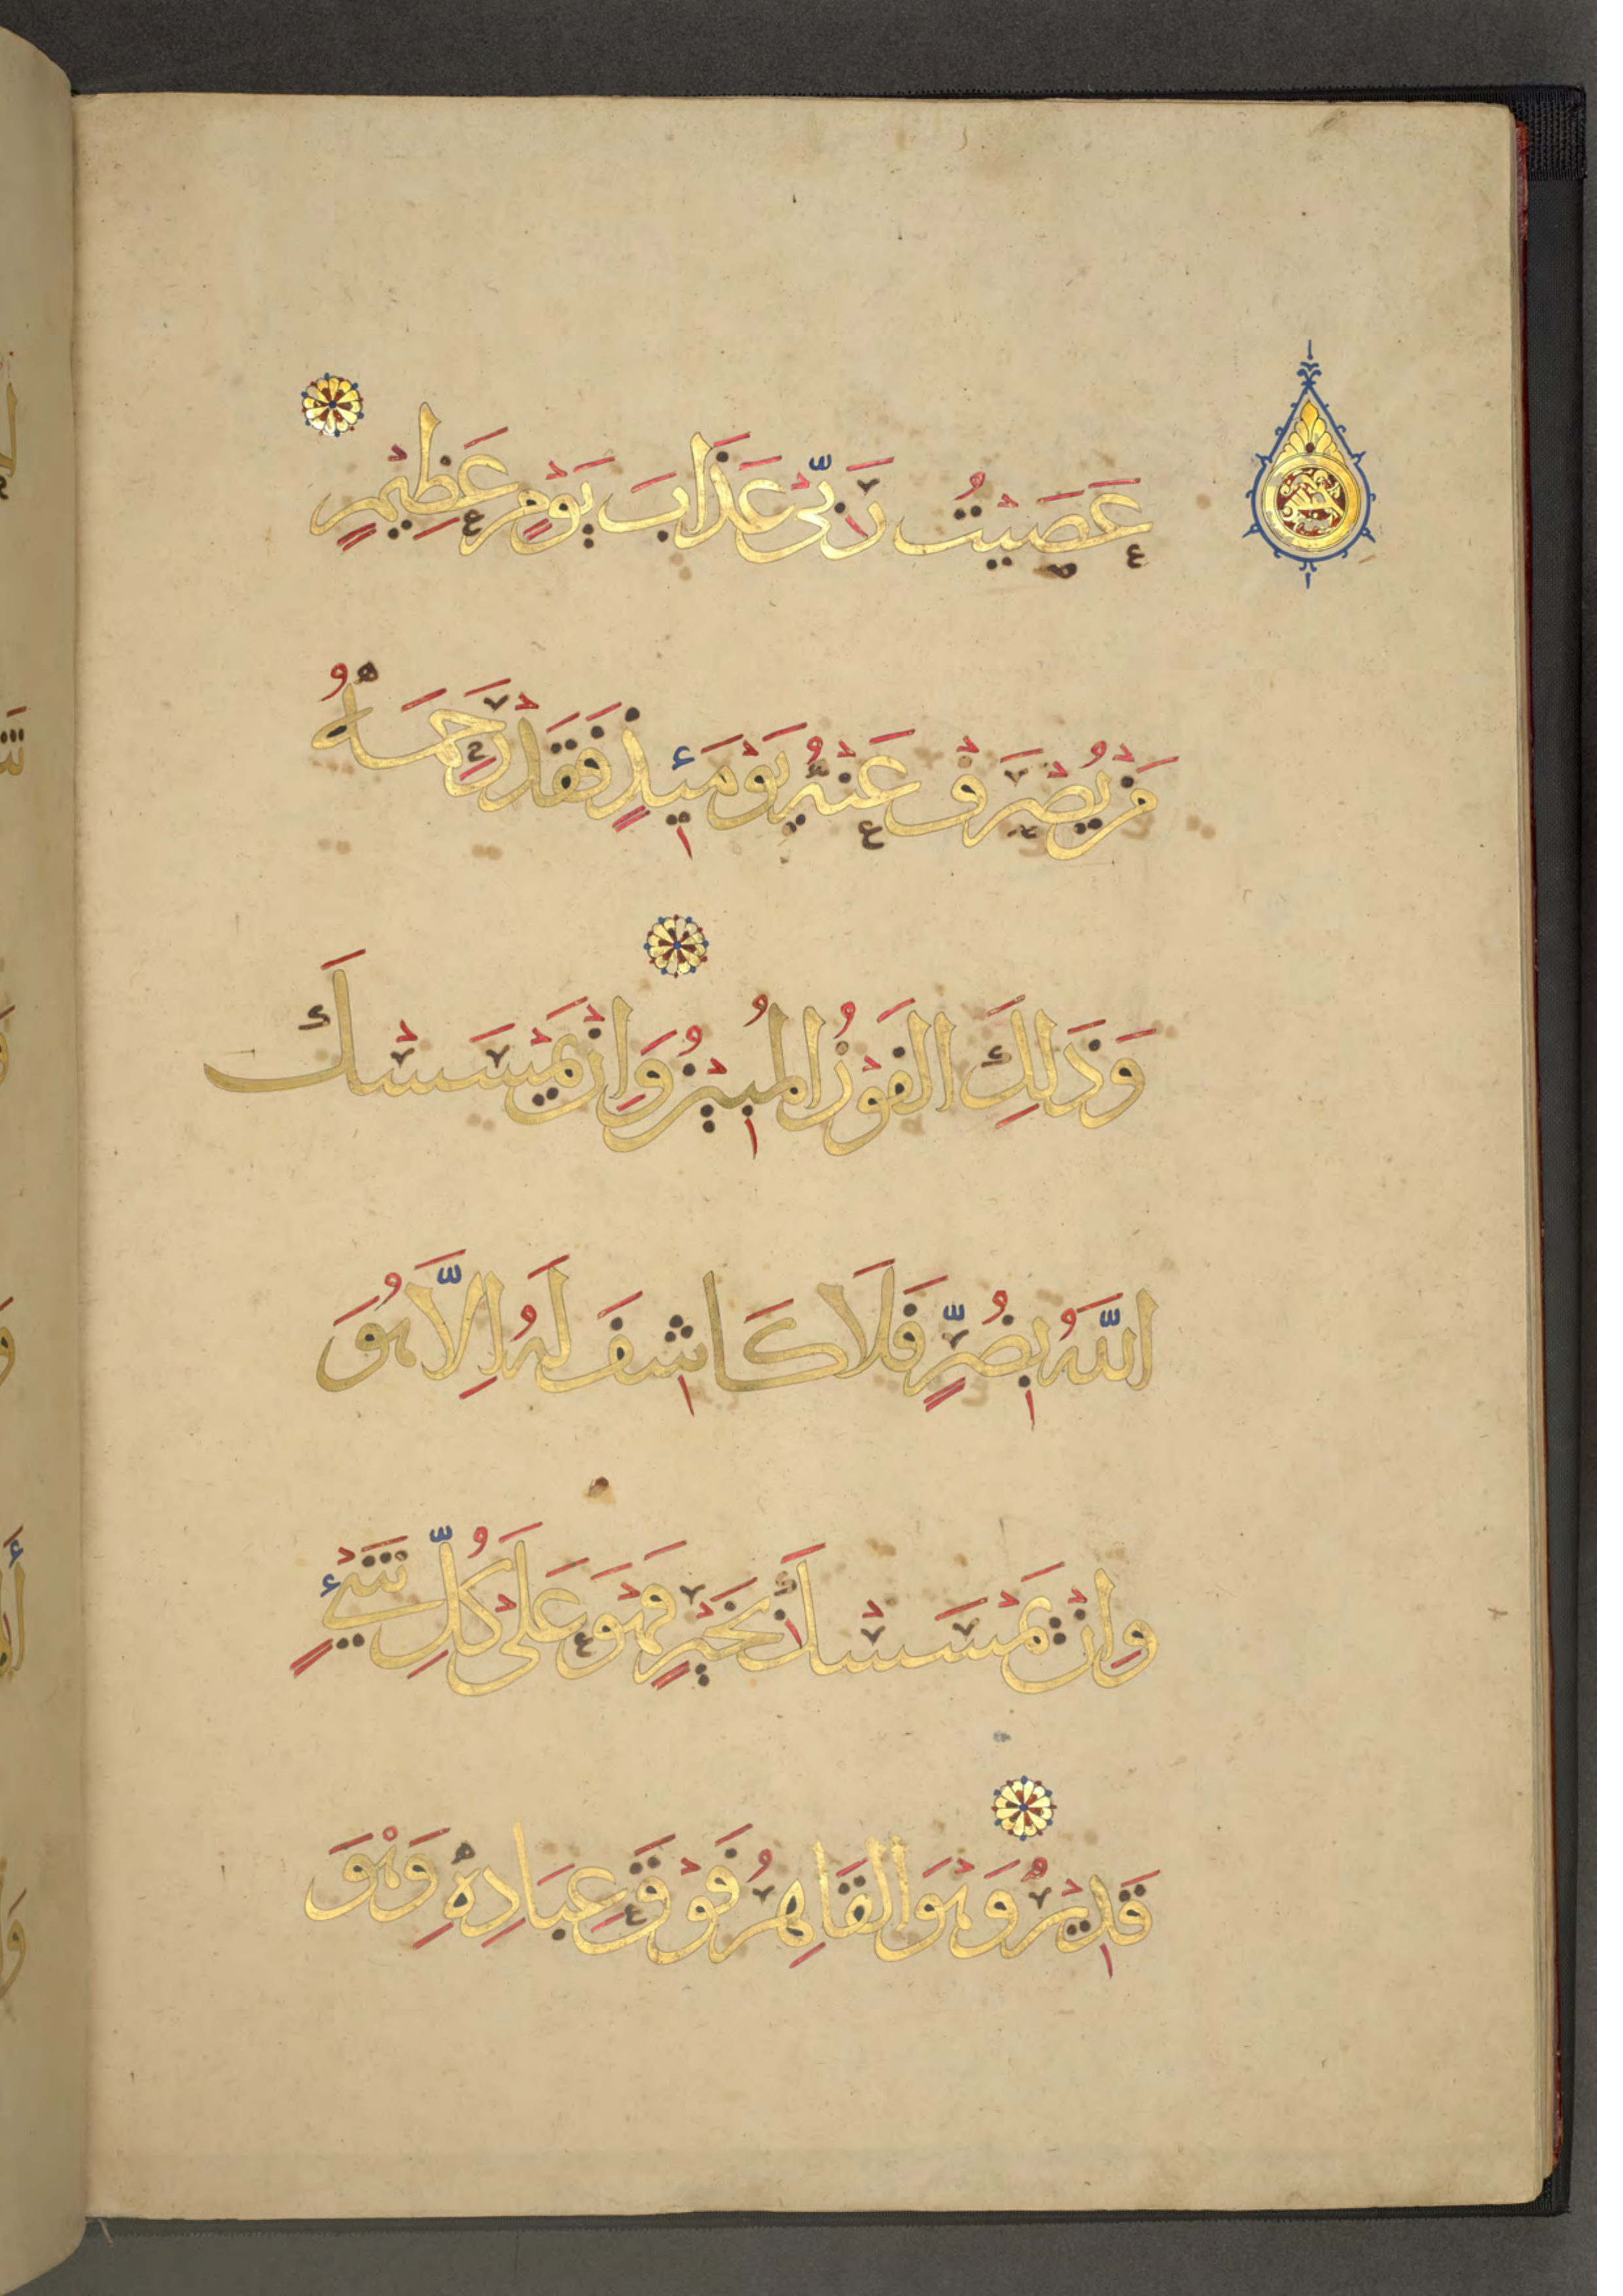 عَصَيْتُ رَبِّيْ عَذَابَ يَوْمٍ عَظِيْمٍ
مَنْ يُصْرَفْ عَنْهُ يَوْمَئِذٍ فَقَدْ رَحِمَهُ
وَذَلِكَ الفَوْزُ المُبِيْنُ وَاِنْ يَمْسَسْكَ
اللَّهُ بِضُرٍّ فَلَا كَاشِفَ لَهُ اِلَّا هُوَ
وَاِنْ يَمْسَسْكَ بِخَيْرٍ فَهْوَ عَلَىْ كُلِّ شَيْءٍ
قَدِيْرُ وَهْوَ القَاهِرُ فَوْقَ عِبَادِهِ وَهْوَ